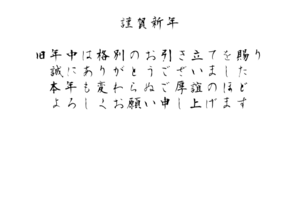 謹賀新年
旧年中は格別のお引き立てを賜り
誠にありがとうございました
本年も変わらぬご厚誼のほど
よろしくお願い申し上げます